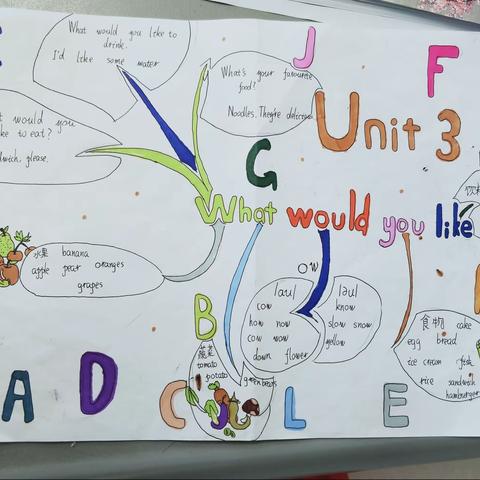 What would you like to
drink.
I'd like some water
What's your favourite
food?
Noodles. They're delicious
J
F
Unit 3
would you
to eat?
please.
G
What would you like
水果 banana
apple pear oranges
grapes
ow
/au/
cow
how now
cow wow
down flower
/əu/
know
slow snow
yellow
食物 cake
egg bread
ice cream fish
rice sandwich
hamburger
B
蔬菜
tomato
potato
green beans
A
D
C
L
E